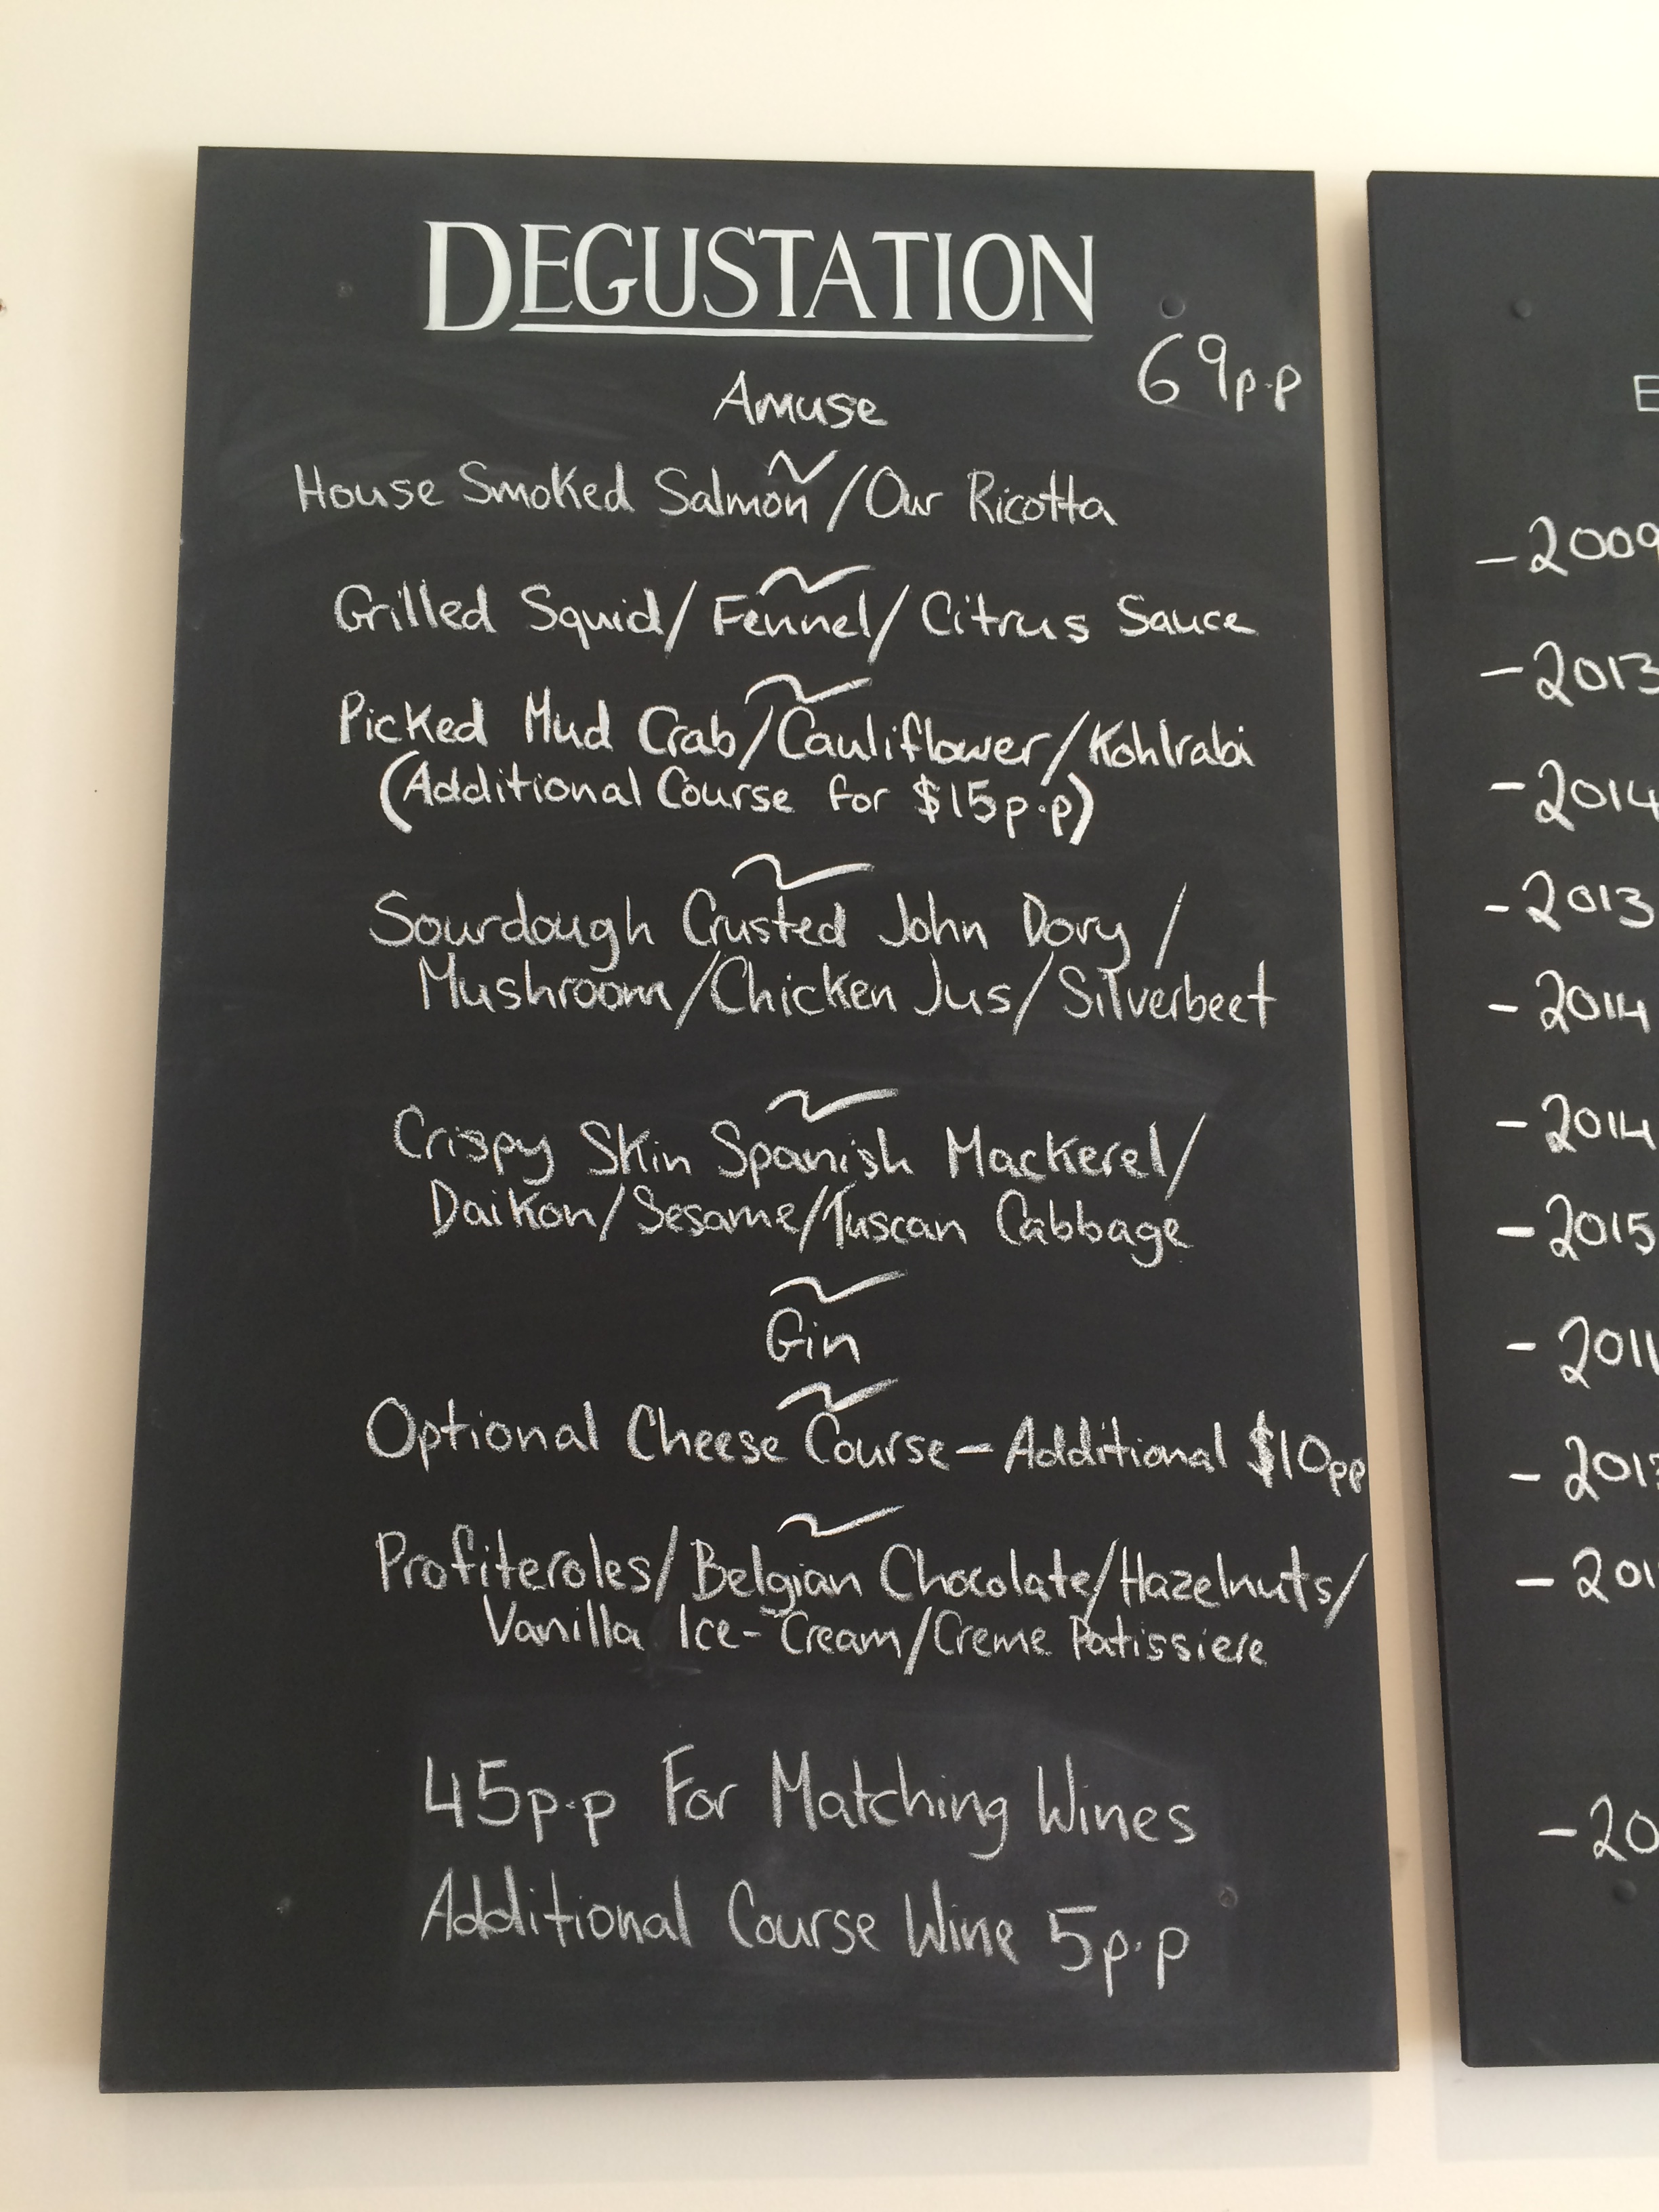 DEGUSTATION
69p.p
Amuse
~
House Smoked Salmon/Our Ricotta
~
Grilled Squid/Fennel/Citrus Sauce
~
Picked Mud Crab/Cauliflower/Kohlrabi
(Additional Course for $15p.p)
~
Sourdough Crusted John Dory/
Mushroom/Chicken Jus/Silverbeet
~
Crispy Skin Spanish Mackerel/
Daikon/Sesame/Tuscan Cabbage
~
Gin
~
Optional Cheese Course - Additional $10pp
~
Profiteroles/Belgian Chocolate/Hazelnuts/
Vanilla Ice-Cream/Creme Patissiere
45p.p For Matching Wines
Additional Course Wine 5p.p
E
-2009
-2013
-2014
-2013
-2014
-2014
-2015
-2011
-2013
-201
-20